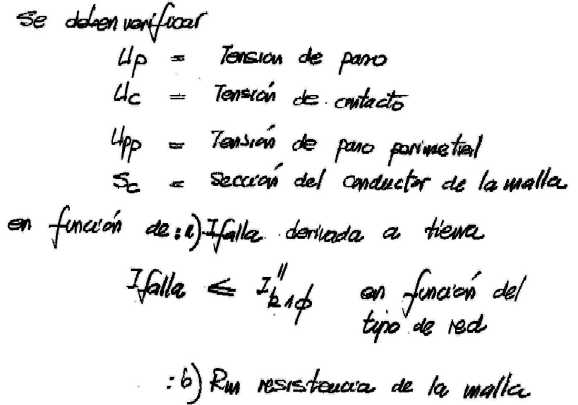 Se deben verificar
Up = Tension de paso
Uc = Tensión de contacto
Upp = Tensión de paso perimetral
Sc = Sección del conductor de la malla
en función de: a) Ifalla derivada a tierra
Ifalla ≤ I"k1φ en función del
tipo de red
: b) Rm resistencia de la malla